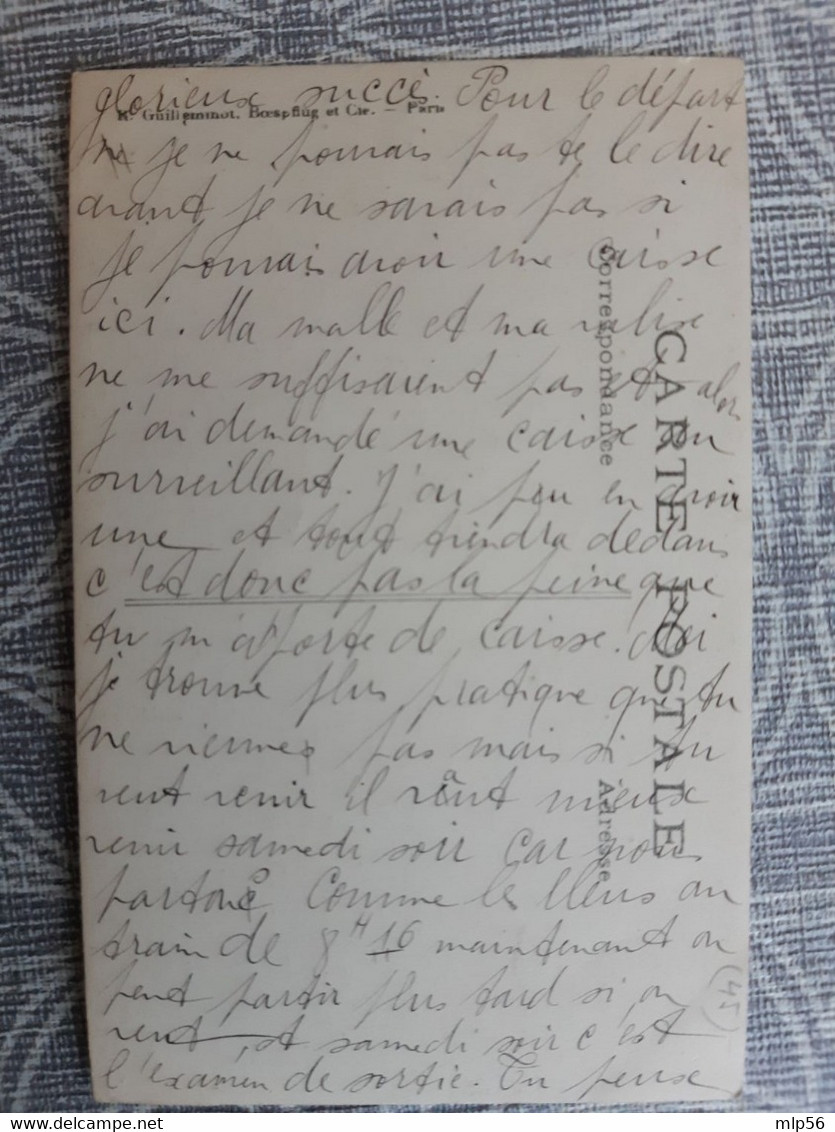 glorieux succè. Pour le départ
R. Guilleminot, Bœspflug et Cie. — Paris
je ne pouvais pas te le dire
avant je ne savais pas si
je pouvais avoir une caisse
ici. Ma malle et ma valise
ne me suffisaient pas et alors
j'ai demandé une caisse au
surveillant. J'ai pou en avoir
une et tout tiendra dedans
c'est donc pas la peine que
tu m'apporte de caisse. Moi
je trouve plus pratique que tu
ne viennes pas mais si tu
veut venir il vaut mieux
venir samedi soir car nous
partons comme les bleus au
train de 8H 16 maintenant on
peut partir plus tard si on
veut et samedi soir c'est
l'examen de sortie. Tu peux
CARTE POSTALE
Correspondance
Adresse
(45)
mlp56